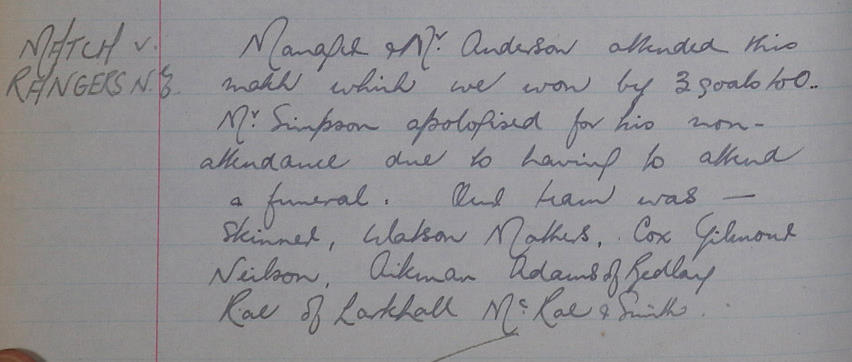 MATCH v.
RANGERS N.S.
Manager & Mr. Anderson attended this
match which we won by 3 goals to 0.
Mr. Simpson apologised for his non-
attendance due to having to attend
a funeral. Our team was —
Skinner, Watson Mathers, Cox Gilmour
Neilson, Aikman Adams of Bedlay
Rae of Larkhall McRae & Smith.